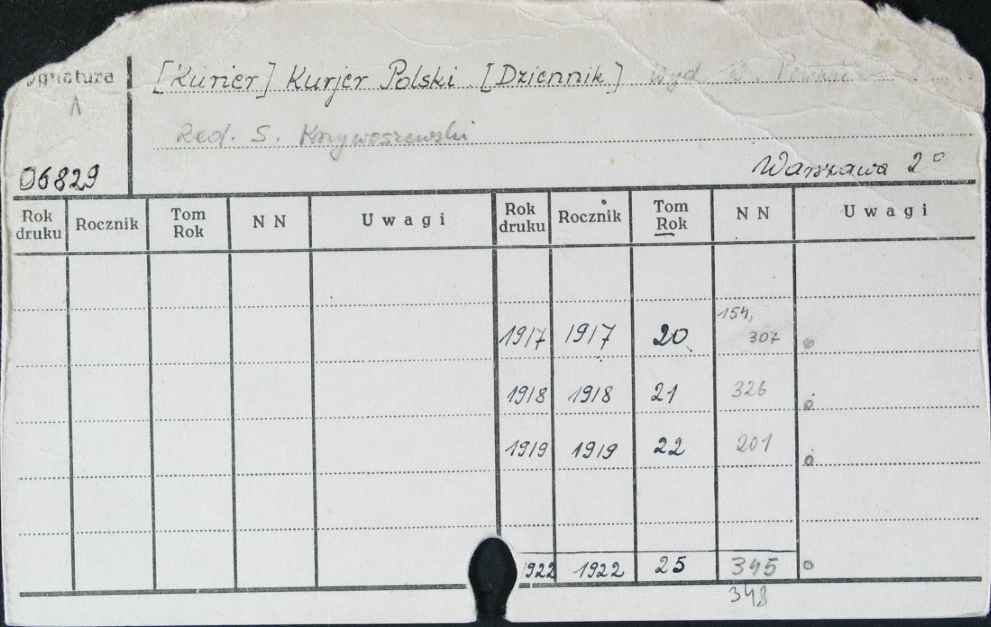 Sygnatura
[Kurier] Kurjer Polski [Dziennik] Wyd.
Λ
Red. S. Krzywoszewski
06829
Warszawa 2°
Rok druku Rocznik Tom Rok N N Uwagi Rok druku Rocznik Tom Rok N N Uwagi
154,
1917 1917 20 307
1918 1918 21 326
1919 1919 22 201
1922 1922 25 345
348